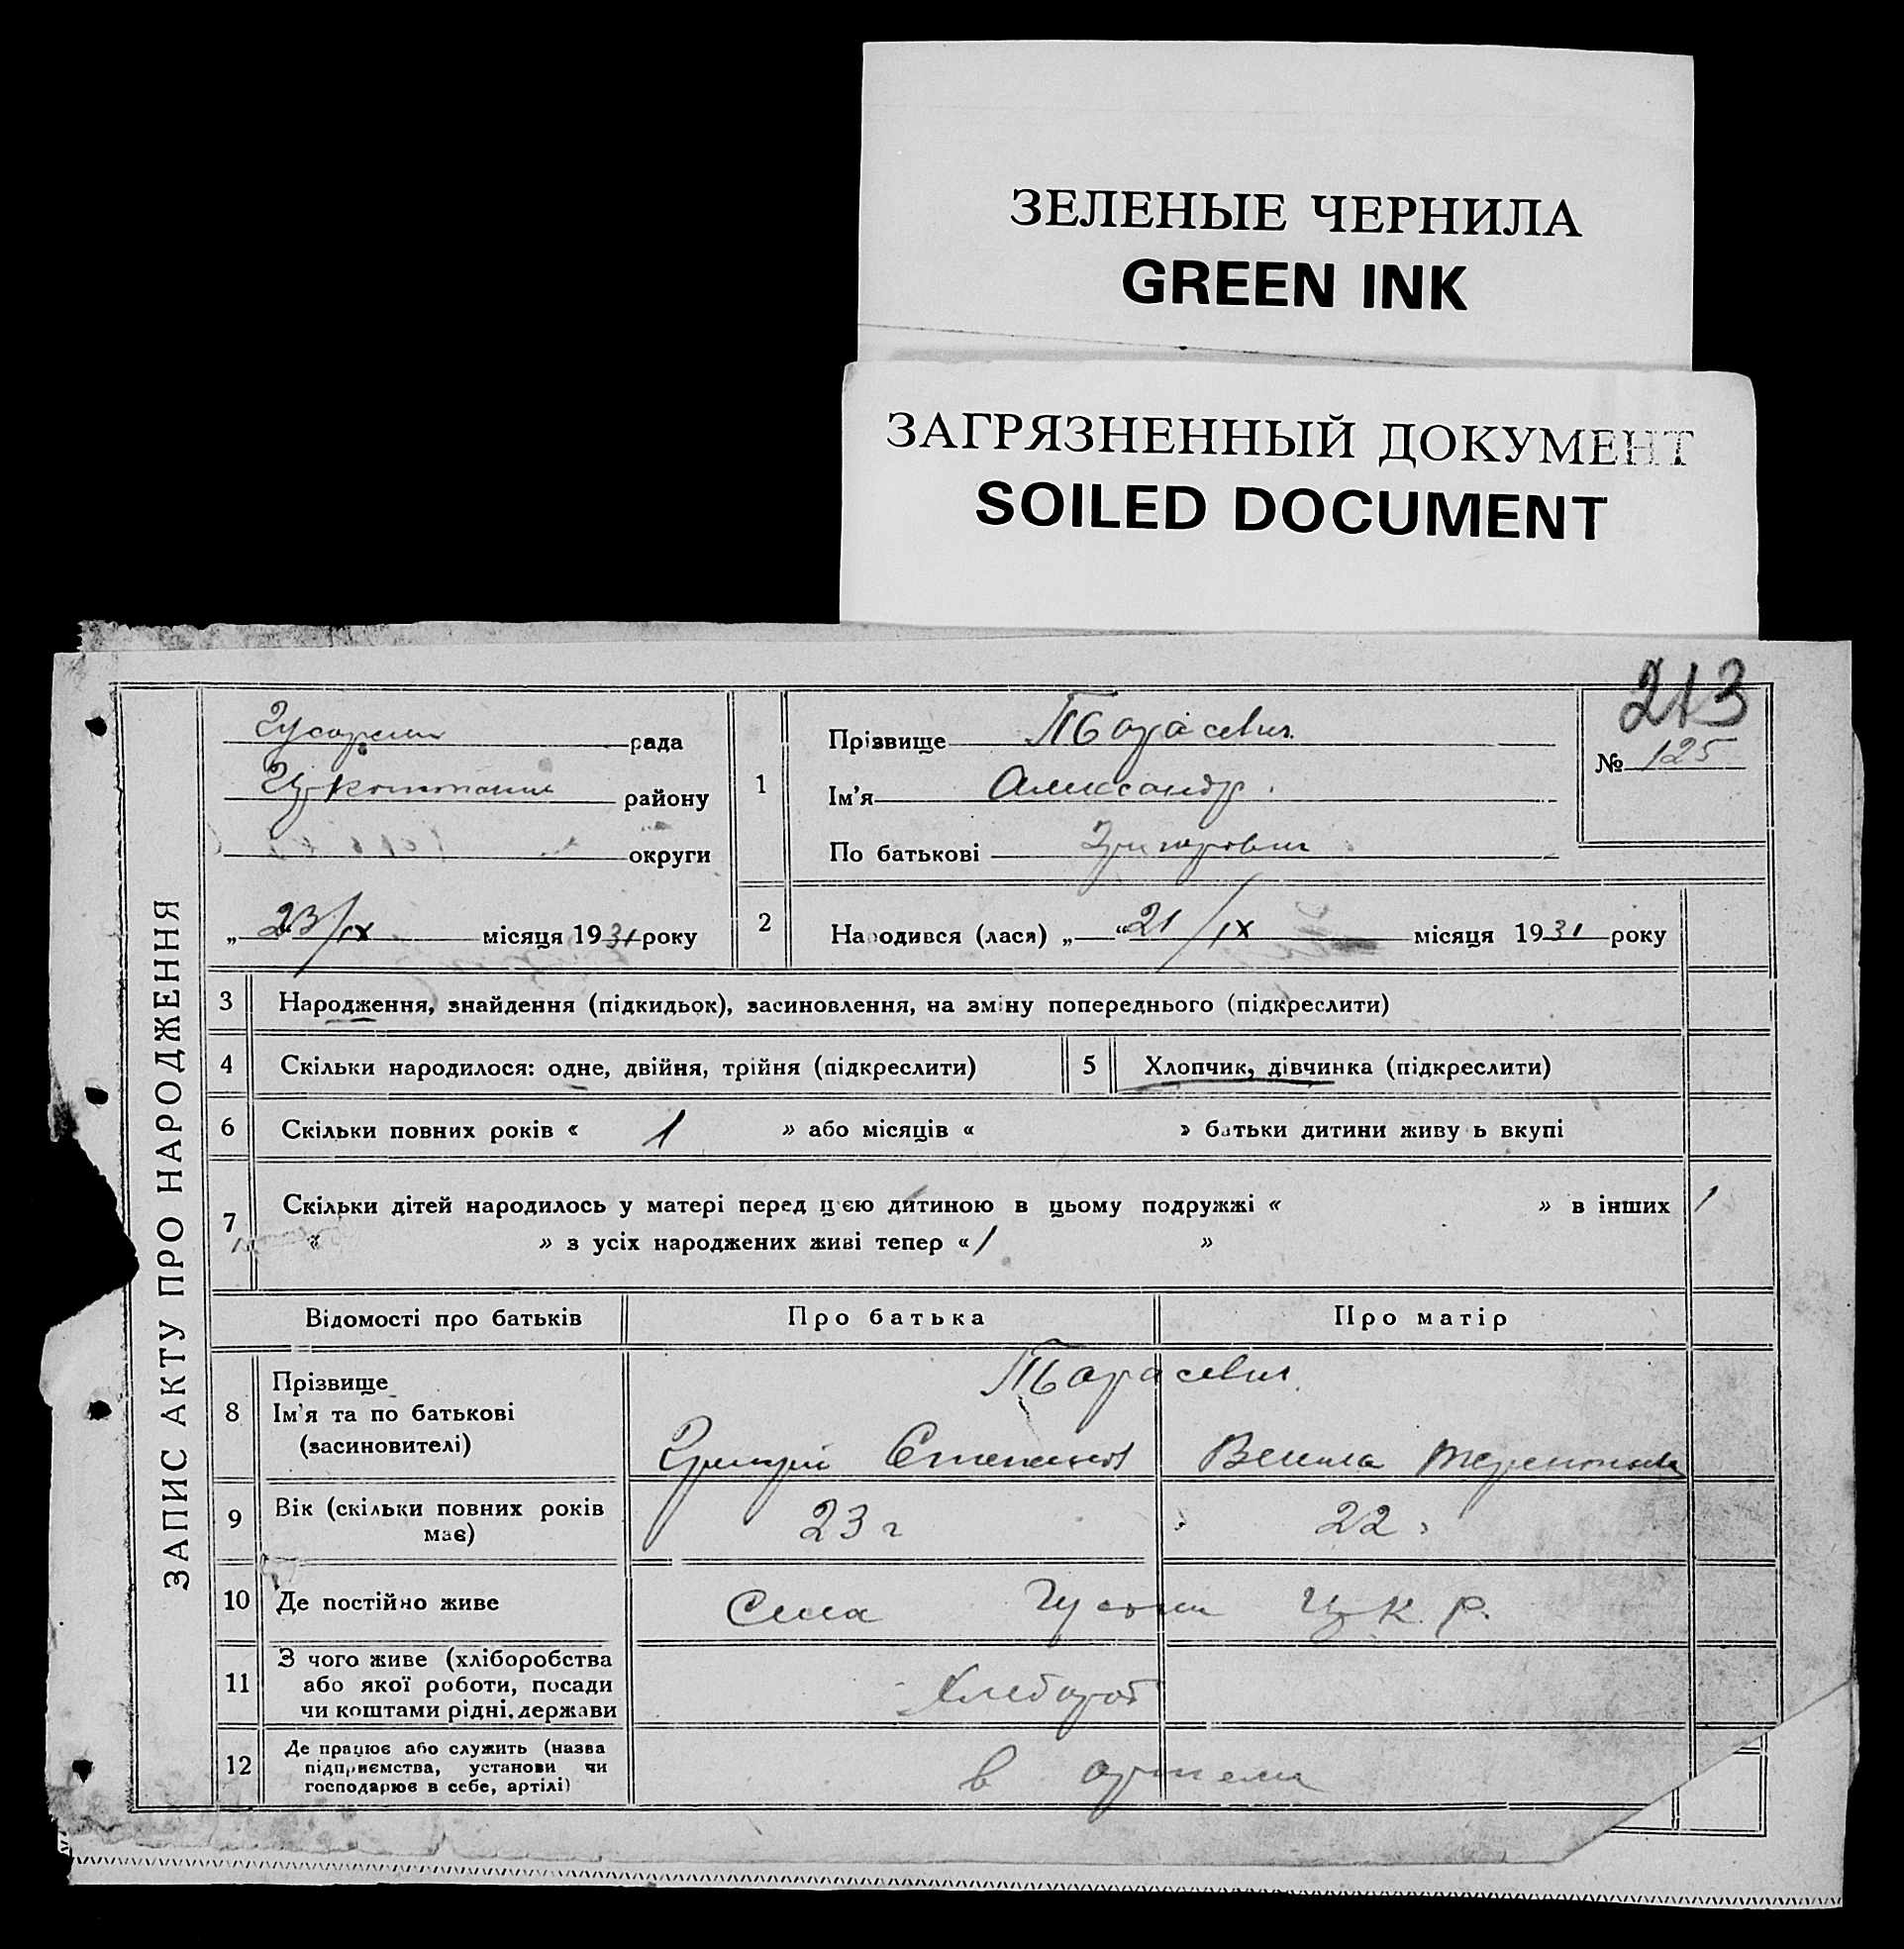 ЗЕЛЕНЫЕ ЧЕРНИЛА
GREEN INK
ЗАГРЯЗНЕННЫЙ ДОКУМЕНТ
SOILED DOCUMENT
213
ЗАПИС АКТУ ПРО НАРОДЖЕННЯ
рада
району
округи
„ 23/IX місяця 1931 року
1
Прізвище Тарасевич
Ім'я Александр.
По батькові Григорович
№ 125
2 Народився (лася) „ “ 21/IX місяця 1931 року
3 Народження, знайдення (підкидьок), засиновлення, на зміну попереднього (підкреслити)
4 Скільки народилося: одне, двійня, трійня (підкреслити) 5 Хлопчик, дівчинка (підкреслити)
6 Скільки повних років « 1 » або місяців « » батьки дитини живу ь вкупі
7 Скільки дітей народилось у матері перед цією дитиною в цьому подружжі « » в інших 1
« » з усіх народжених живі тепер « 1 »
Відомості про батьків Про батька Про матір
8 Прізвище Тарасевич.
Ім'я та по батькові
(засиновителі) Григорій Степанов
9 Вік (скільки повних років має) 23 г 22
10 Де постійно живе Села Ц. К. Р.
11 З чого живе (хліборобства або якої роботи, посади чи коштами рідні, держави Хлебороб
12 Де працює або служить (назва підприємства, установи чи господарює в себе, артілі) в артели